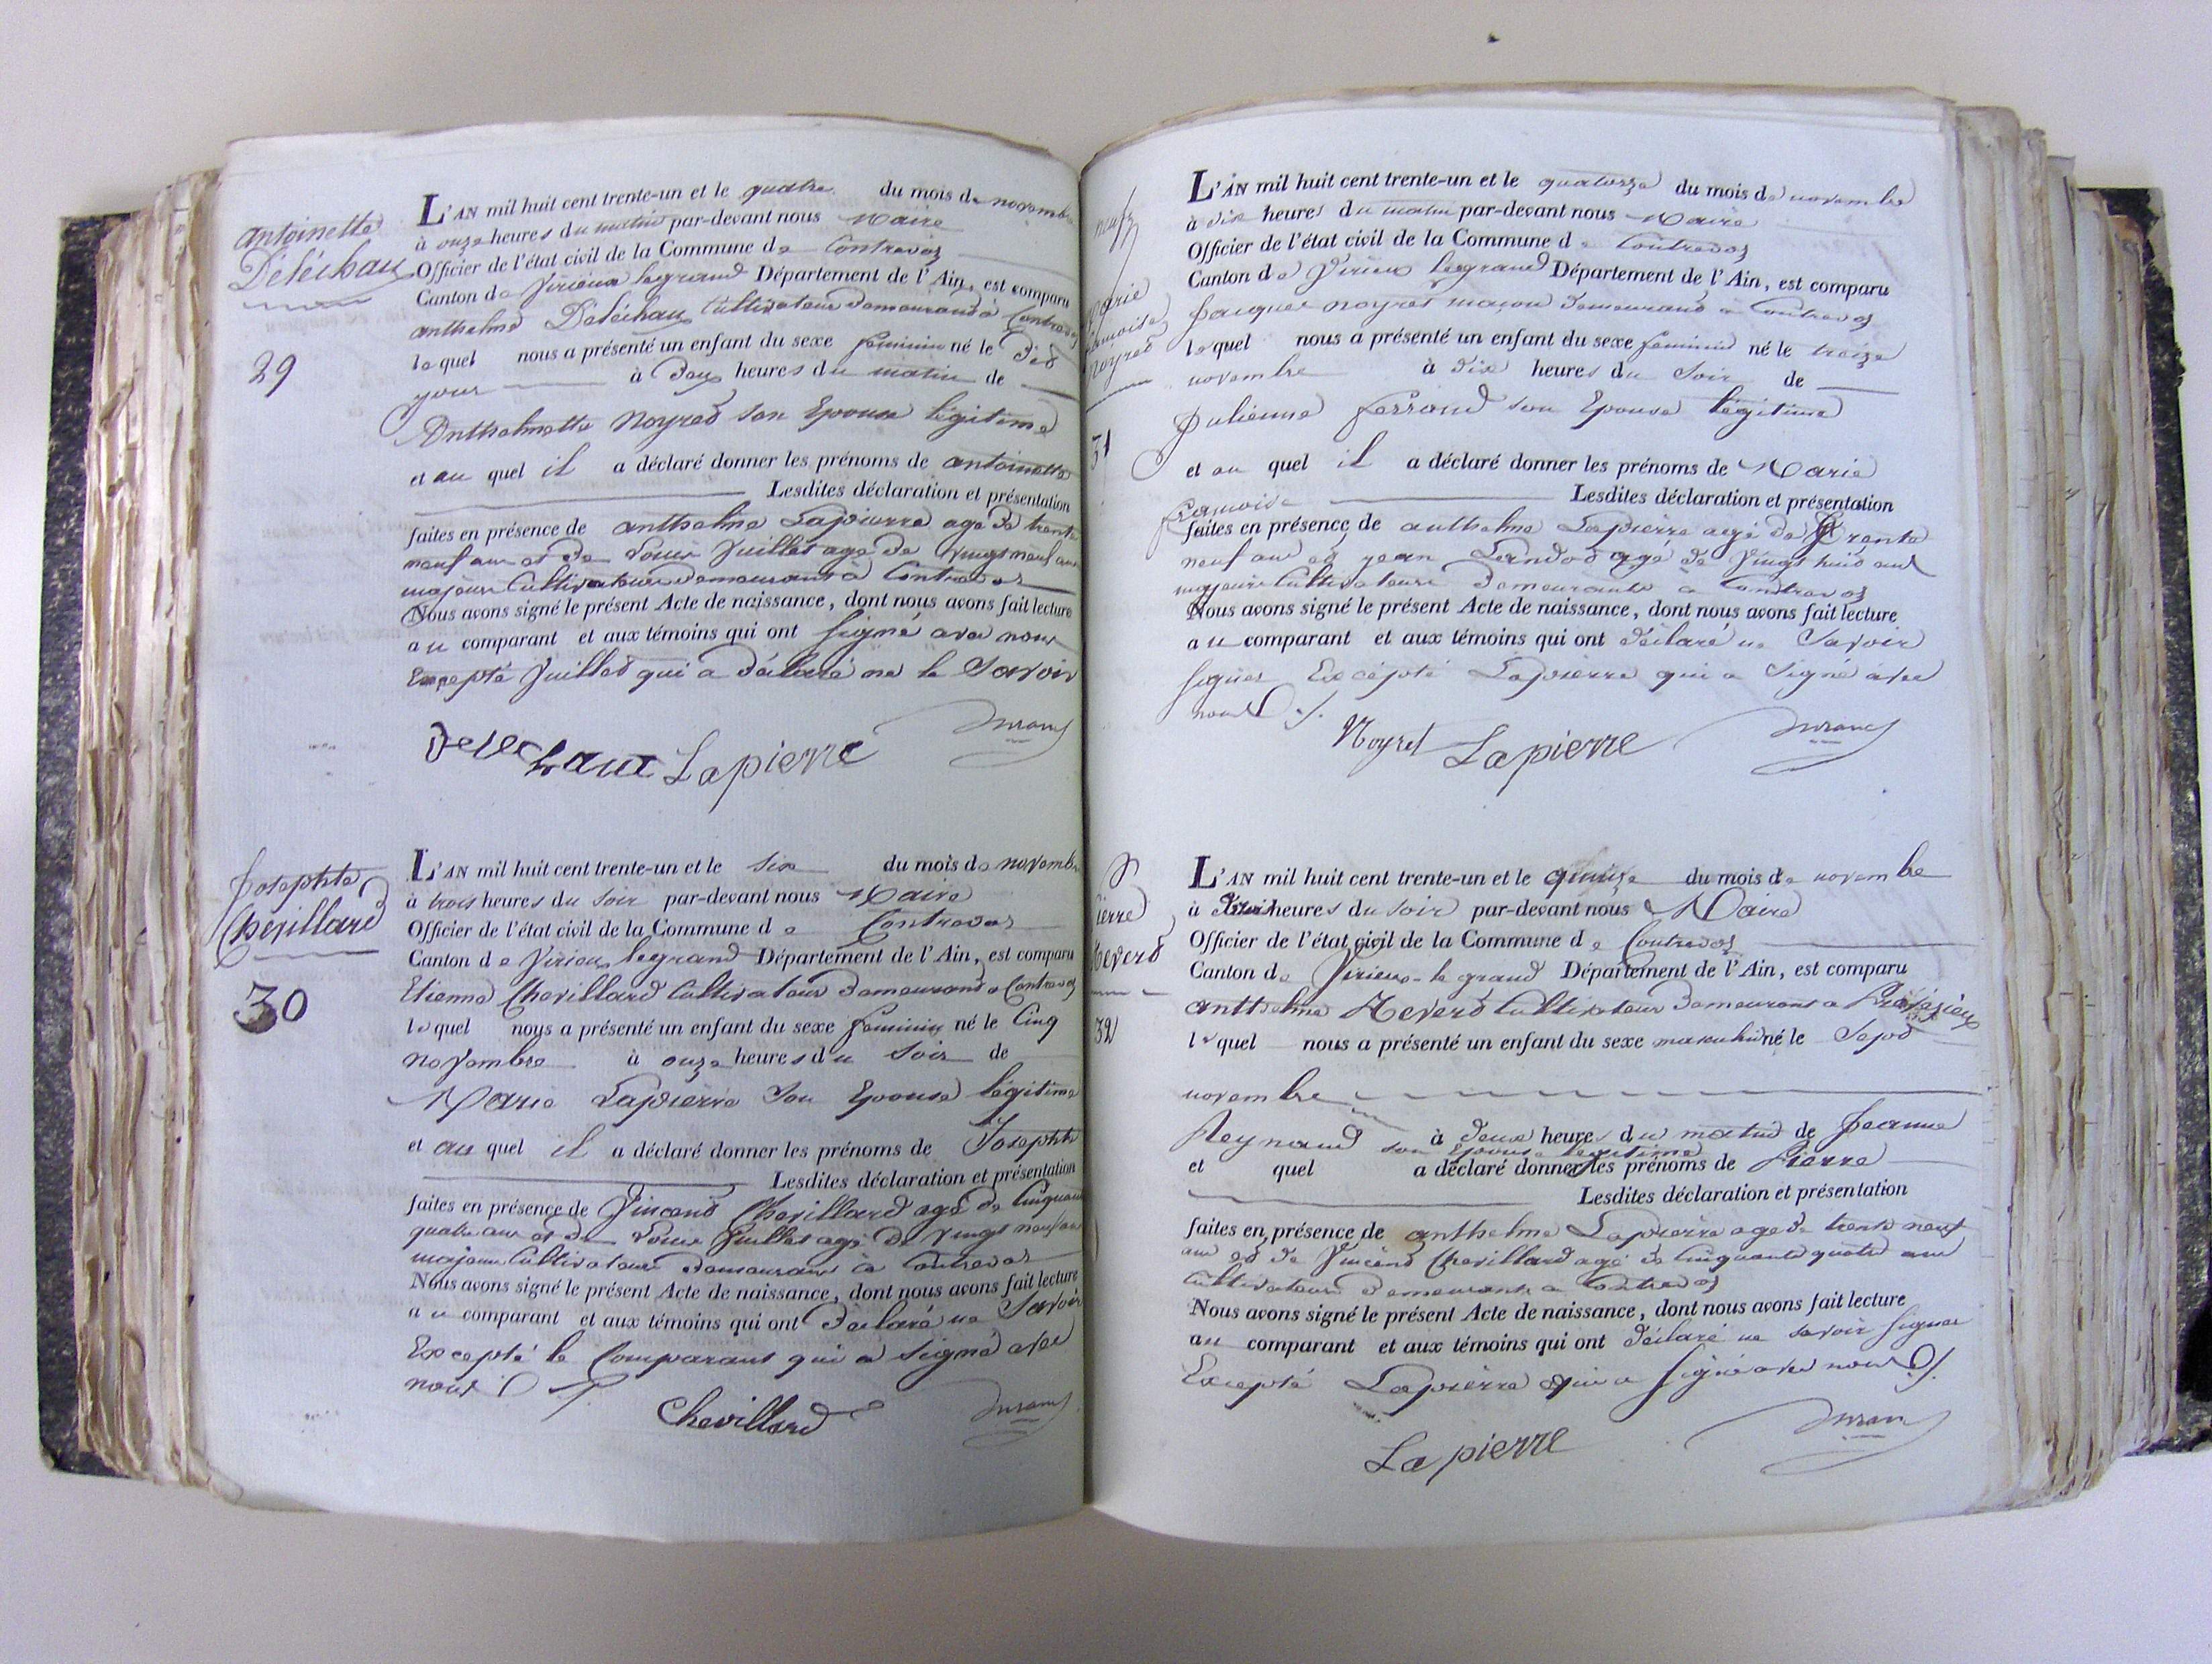 antoinette
Deléchaux
29
L'AN mil huit cent trente-un et le quatre du mois de novembre
à onze heures du matin par-devant nous Maire
Officier de l'état civil de la Commune de Contrevoz
Canton de Virieux legrand Département de l'Ain, est comparu
anthelme Deléchaux Cultivateur demeurand à Contrevoz
lequel nous a présenté un enfant du sexe feminin né le dit
jour à deux heures du matin de
Anthelmette Noyred son Epouse légitime
et au quel il a déclaré donner les prénoms de antoinette
Lesdites déclaration et présentation
faites en présence de anthelme Lapierre agé de trente
neuf ans et de Louis Juillet agé de vingt neuf ans
majeurs Cultivateurs demeurants à Contrevoz
Nous avons signé le présent Acte de naissance, dont nous avons fait lecture
au comparant et aux témoins qui ont signé avec nous
Excepté Juilled qui a déclaré ne le Savoir
Delechaux Lapierre
Josephte
Chevillard
30
L'AN mil huit cent trente-un et le six du mois de novembre
à trois heures du soir par-devant nous Maire
Officier de l'état civil de la Commune de Contrevoz
Canton de Virieux legrand Département de l'Ain, est comparu
Etienne Chevillard Cultivateur demeurand a Contrevoz
lequel nous a présenté un enfant du sexe feminin né le Cinq
novembre à onze heures du soir de
Marie Lapierre son Epouse légitime
et au quel il a déclaré donner les prénoms de Josephte
Lesdites déclaration et présentation
faites en présence de Vincend Chevillard agé de Cinquante
quatre ans et de Louis Juillet agé de vingt neuf ans
majeurs Cultivateurs demeurans à Contrevoz
Nous avons signé le présent Acte de naissance, dont nous avons fait lecture
au comparant et aux témoins qui ont déclaré ne Savoir
Excepté le Comparant qui a signé avec
nous
Chevillard
Marie
francoise
Noyred
31
L'AN mil huit cent trente-un et le quatorze du mois de novembre
à dix heures du matin par-devant nous Maire
Officier de l'état civil de la Commune de Contrevoz
Canton de Virieux legrand Département de l'Ain, est comparu
Jacques noyret maçon demeurand a Contrevoz
lequel nous a présenté un enfant du sexe feminin né le treize
novembre à dix heures du soir de
Julienne ferrand son Epouse légitime
et au quel il a déclaré donner les prénoms de Marie
francoise Lesdites déclaration et présentation
faites en présence de anthelme Lapierre agé de trente
neuf ans et jean agé de Vingt huid ans
majeurs Cultivateurs demeurants a Contrevoz
Nous avons signé le présent Acte de naissance, dont nous avons fait lecture
au comparant et aux témoins qui ont déclaré ne Savoir
signer Excepté Lapierre qui a signé avec
nous
Noyret Lapierre
Pierre
Reverd
32
L'AN mil huit cent trente-un et le quinze du mois de novembre
à heures du soir par-devant nous Maire
Officier de l'état civil de la Commune de Contrevoz
Canton de Virieux-le grand Département de l'Ain, est comparu
anthelme Reverd Cultivateur demeurant a
lequel nous a présenté un enfant du sexe masculin né le Sept
novembre
à deux heures du matin de Jeanne
Reynaud son Epouse legitime
et quel a déclaré donner les prénoms de Pierre
Lesdites déclaration et présentation
faites en présence de anthelme Lapierre age de trente neuf
ans et de Vincend Chevillard agé de Cinquante quatre ans
Cultivateurs demeurants a Contrevoz
Nous avons signé le présent Acte de naissance, dont nous avons fait lecture
au comparant et aux témoins qui ont déclaré ne savoir signer
Excepté Lapierre qui a signé avec nous
Lapierre